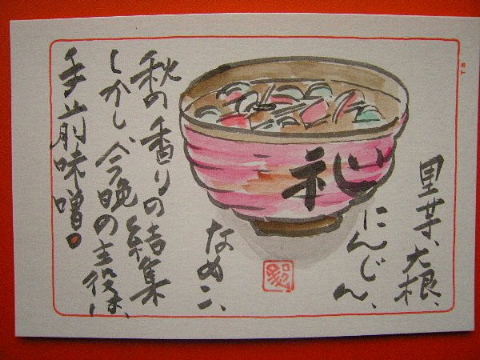 里芋、大根、
にんじん、
なめこ、
秋の香りの結集
しかし、今晩の主役は、
手前味噌。